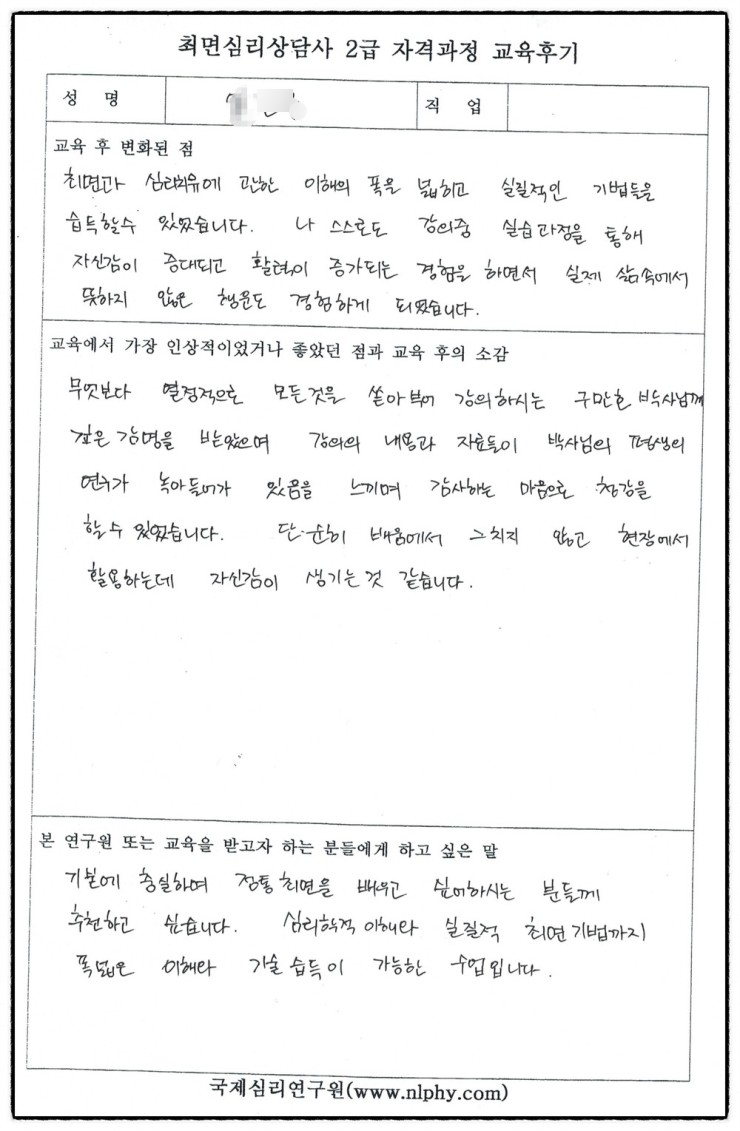 최면심리상담사 2급 자격과정 교육후기
성 명
직 업
교육 후 변화된 점
최면과 심리치유에 관한 이해의 폭을 넓히고 실질적인 기법들을
습득할수 있었습니다. 나 스스로도 강의중 실습과정을 통해
자신감이 증대되고 활력이 증가되는 경험을 하면서 실제 삶속에서
뜻하지 않은 행운도 경험하게 되었습니다.
교육에서 가장 인상적이었거나 좋았던 점과 교육 후의 소감
무엇보다 열정적으로 모든것을 쏟아부어 강의하시는 구만호 박사님께
깊은 감명을 받았으며 강의의 내용과 자료들이 박사님의 평생의
연구가 녹아들어가 있음을 느끼며 감사하는 마음으로 청강을
할 수 있었습니다. 단순히 배움에서 그치지 않고 현장에서
활용하는데 자신감이 생기는 것 같습니다.
본 연구원 또는 교육을 받고자 하는 분들에게 하고 싶은 말
기본에 충실하며 정통최면을 배우고 싶어하시는 분들께
추천하고 싶습니다. 심리학적 이해와 실질적 최면기법까지
폭넓은 이해와 기술 습득이 가능한 수업입니다.
국제심리연구원(www.nlphy.com)